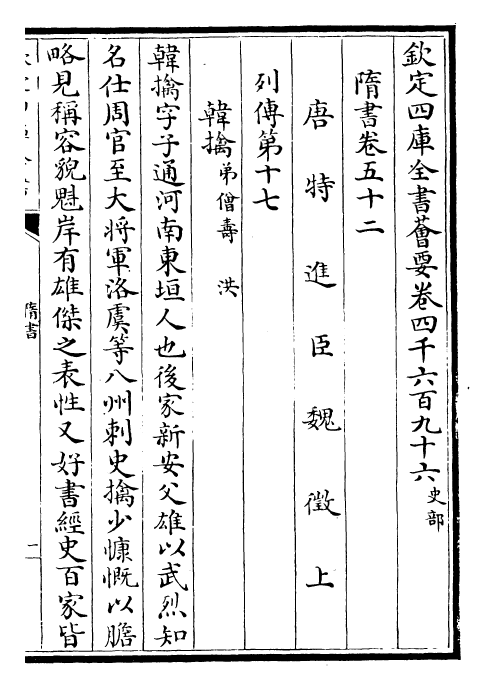 欽定四庫全書薈要卷四千六百九十六史部
隋書卷五十二
唐特進臣魏徵上
列傳第十七
韓擒弟僧壽 洪
韓擒字子通河南東垣人也後家新安父雄以武烈知
名仕周官至大將軍洛虞等八州刺史擒少慷慨以膽
略見稱容貌魁岸有雄傑之表性又好書經史百家皆
隋書